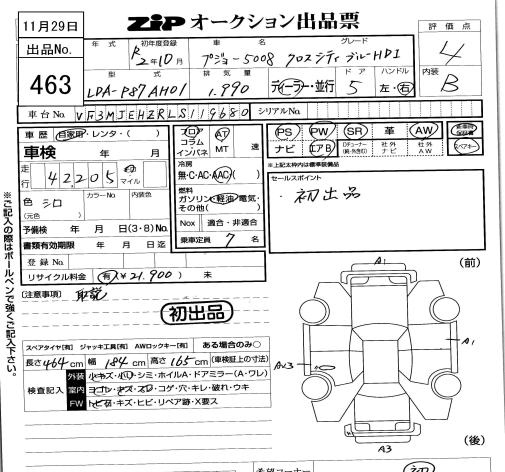 11月29日
出品No.
463
ZiP オークション出品票
評価点
4
内装
B
年式 初年度登録 車名 グレード
R 2年10月 プジョー5008 クロスシティ ブルーHDI
型式 排気量 ドア ハンドル
LDA-P87AH01 1.990 ディーラー・並行 5 左・右
車台No. VF3MJEHZRLS119680 シリアルNo.
車歴 自家用・レンタ・( )
車検 年 月
走行 42205 マイル
色 シロ カラーNo. 内装色
(元色 )
予備検 年 月 日(3・8)No.
書類有効期限 年 月 日迄
登録No.
リサイクル料金 有 ¥21.900 未
フロア コラム インパネ AT MT 速
冷房
無・C・AC・AAC( )
燃料
ガソリン・軽油・電気・その他( )
Nox 適合・非適合
乗車定員 7 名
PS PW SR 革 AW 保証書
ナビ エアB 社外ナビ 社外AW スペアキー
※上記太枠内は標準装備品
セールスポイント
・初出品
[注意事項] 取説
初出品
スペアタイヤ[有] ジャッキ工具[有] AWロックキー[有] ある場合のみ○
長さ464cm 幅184cm 高さ165cm (車検証上の寸法)
検査記入
外装 小キズ・小凹・シミ・ホイルA・ドアミラー(A・ワレ)
室内 ヨゴレ・キズ・スレ・コゲ・穴・キレ・破れ・ウキ
FW トビ石・キズ・ヒビ・リペア跡・X要ス
※ご記入の際はボールペンで強くご記入下さい。
A1
(前)
A1
Ax3
A3
(後)
希望コーナー 初